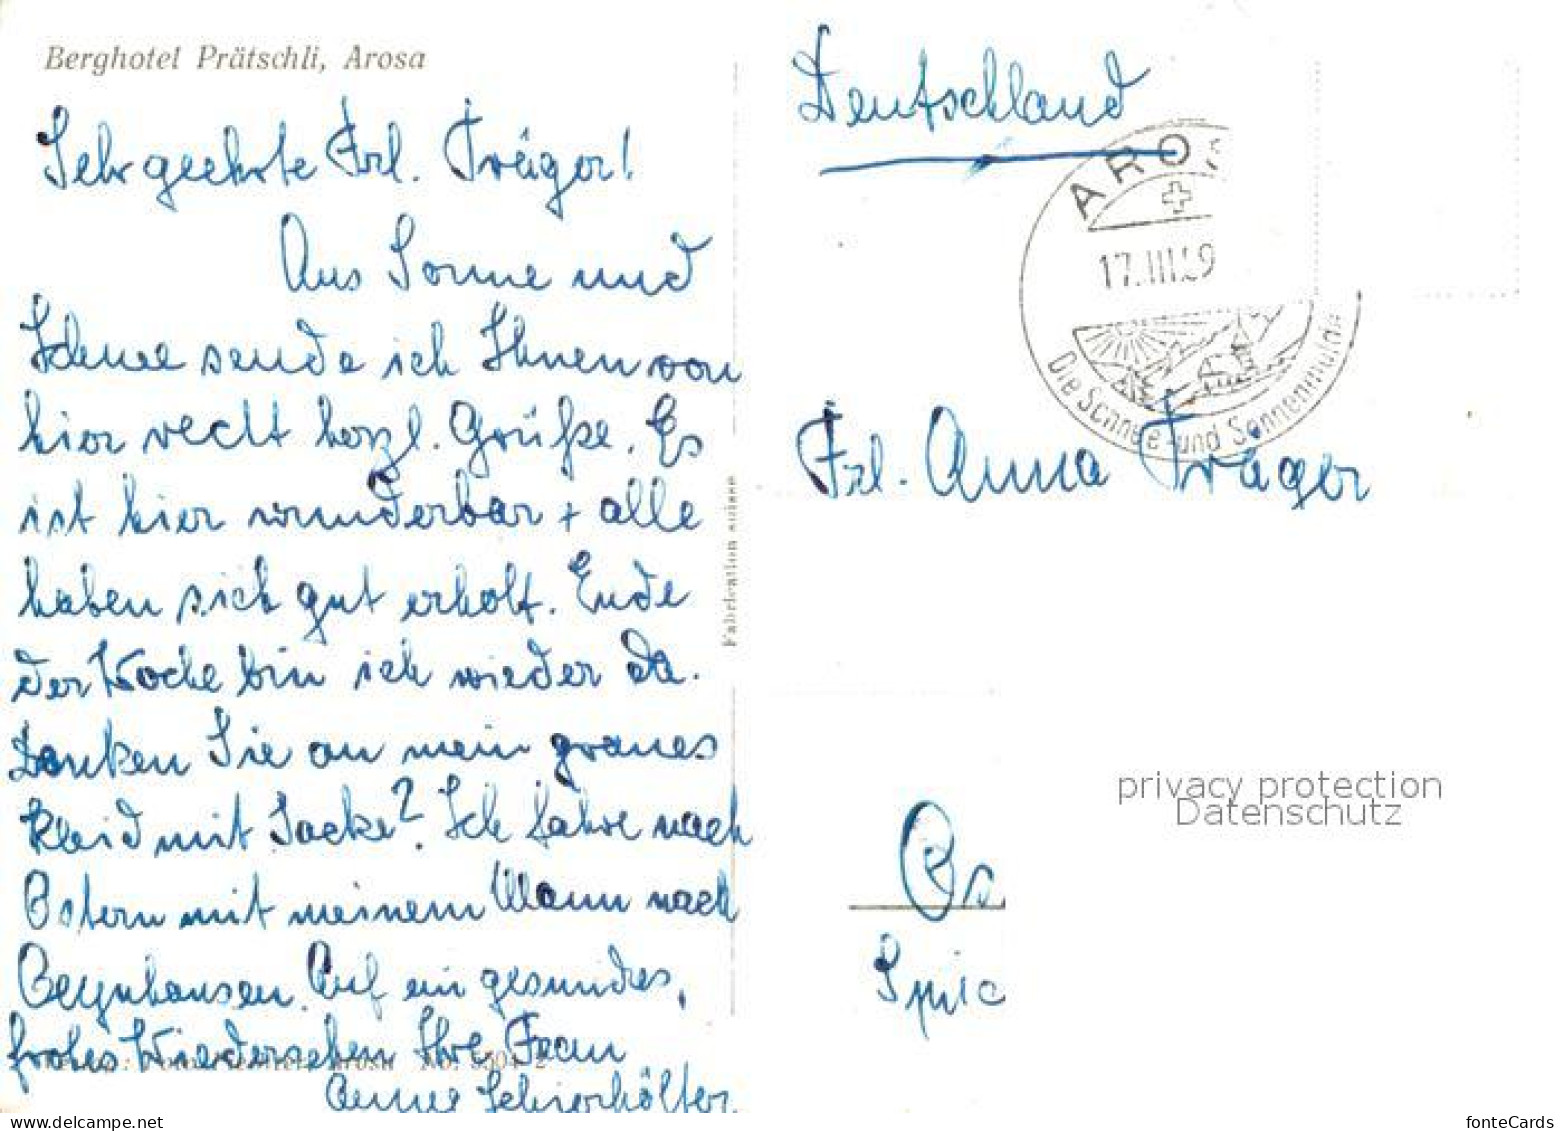 Berghotel Prätschli, Arosa
Sehr geehrte Frl. Träger!
Aus Sonne und
Schnee sende ich Ihnen von
hier recht herzl. Grüße. Es
ist hier wunderbar + alle
haben sich gut erholt. Ende
der Woche bin ich wieder da.
Danken Sie an mein graues
Kleid mit Jacke? Ich fahre nach
Ostern mit meinem Mann nach
Oeynhausen. Auf ein gesundes,
frohes Wiedersehen Ihre Frau
Anne Schierhölter
No.
Fabrication suisse
Deutschland
AROS
17.III.59
Die Schnee- und Sonnenmulde
Frl. Anna Träger
Os
Spic
privacy protection
Datenschutz
www.delcampe.net
fonteCards